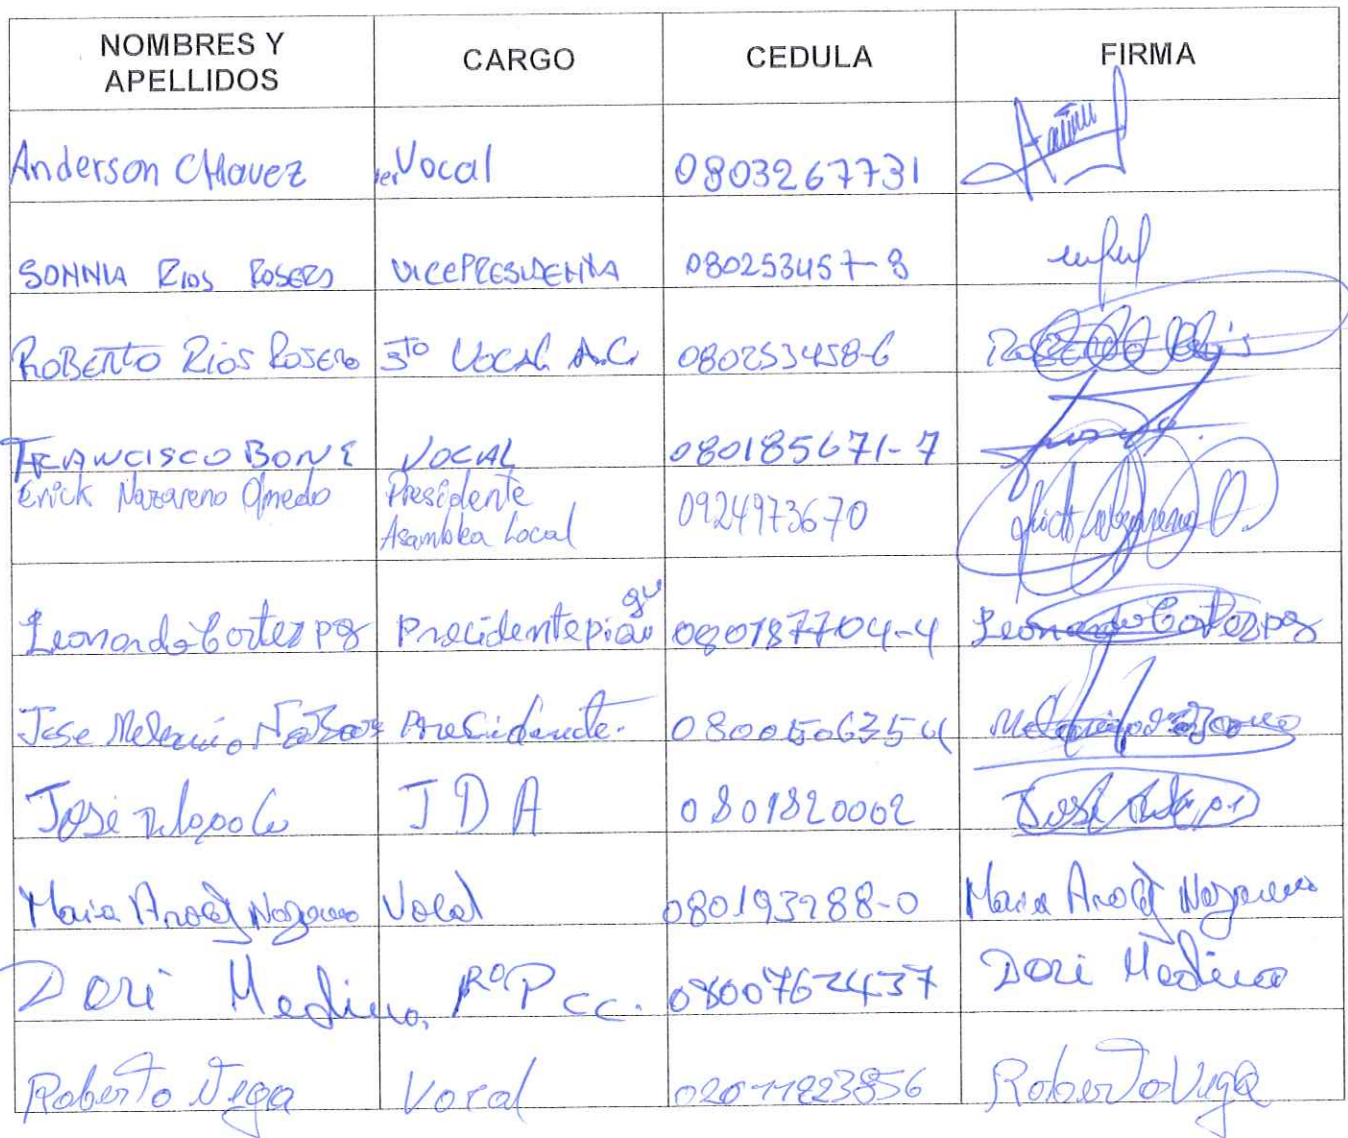 NOMBRES Y APELLIDOS CARGO CEDULA FIRMA
Anderson Chavez 1er Vocal 0803267731
SONNIA RIOS ROSERO VICEPRESIDENTA 080253457-8
ROBERTO RIOS ROSERO 3TO VOCAL A.C. 080253458-6
FRANCISCO BONE VOCAL 080185671-7
Erick Nazareno Olmedo Presidente Asamblea Local 0924973670
Leonardo Cortez pg Precidente 080187704-4 Leonardo Cortez pg
Jose Melanio Precidente.
Jose J D A 0801820002
Maria Nazareno Vocal 080193288-0 Maria Nazareno
Dori Medina, cc. 0800762437 Dori Medina
Roberto Vega Vocal Roberto Vega